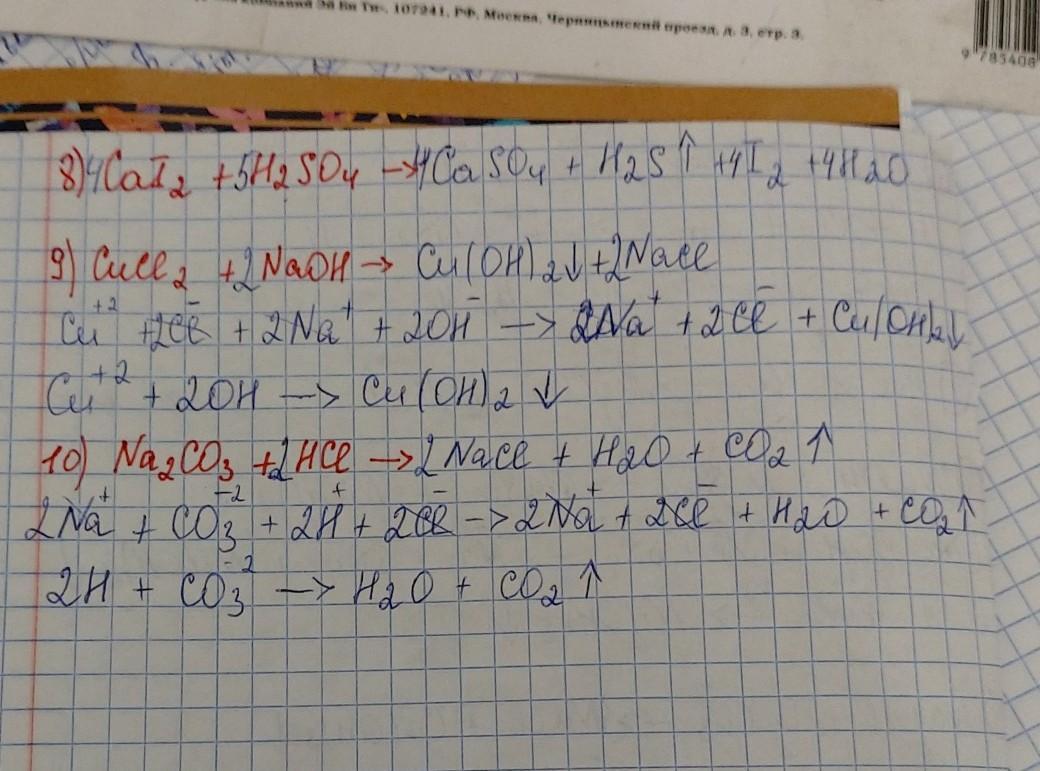 компаний Эй Би Ти», 107241, РФ, Москва, Черницынский проезд, д. 3, стр. 3.
9 785408
8) 4CaI₂ + 5H₂SO₄ → 4CaSO₄ + H₂S↑ + 4I₂ + 4H₂O
9) CuCl₂ + 2NaOH → Cu(OH)₂↓ + 2NaCl
Cu⁺² + 2Cl⁻ + 2Na⁺ + 2OH⁻ → 2Na⁺ + 2Cl⁻ + Cu(OH)₂↓
Cu⁺² + 2OH → Cu(OH)₂↓
10) Na₂CO₃ + 2HCl → 2NaCl + H₂O + CO₂↑
2Na⁺ + CO₃⁻² + 2H⁺ + 2Cl⁻ → 2Na⁺ + 2Cl⁻ + H₂O + CO₂↑
2H + CO₃⁻² → H₂O + CO₂↑